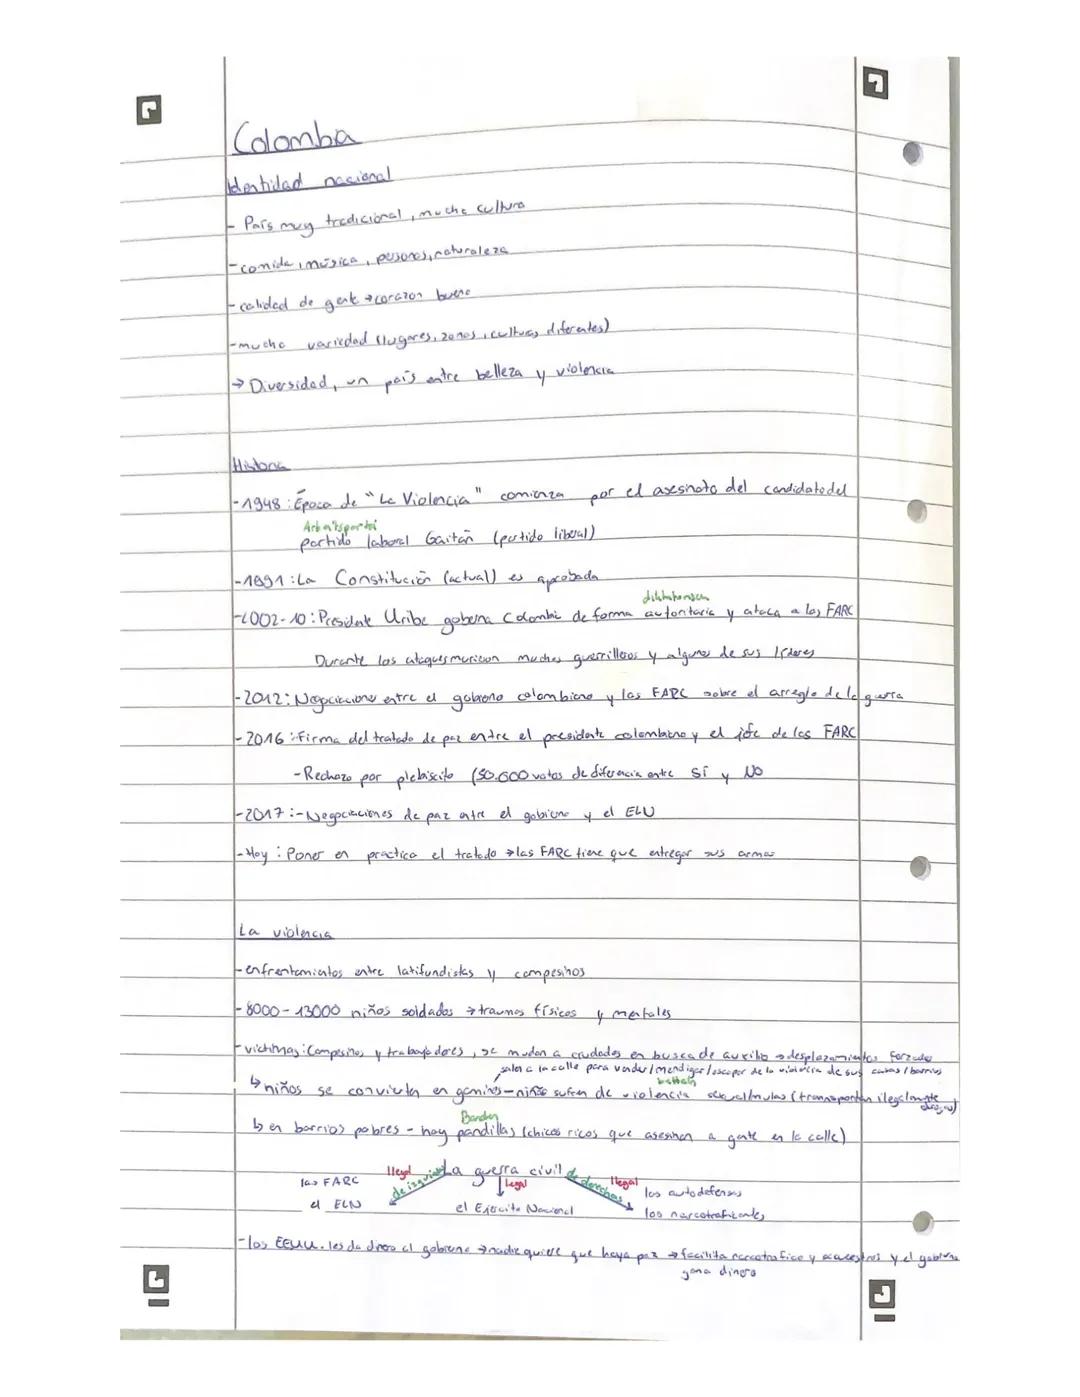 Colomba
Identidad nacional
- País muy tradicional, mucha cultura
- comida, música, personas, naturaleza
- calidad de gente → corazon bueno
- mucha variedad (lugares, zonas, culturas diferentes)
→ Diversidad, un país entre belleza y violencia
Historia
- 1948: Época de "La Violencia" comienza por el asesinato del candidato del
Arbeitspartei
partido laboral Gaitán (partido liberal)
- 1991: La Constitución (actual) es aprobada
diktatorisch
- 2002-10: Presidente Uribe goberna Colombia de forma autoritaria y ataca a las FARC
Durante los ataques murieron muchos guerrilleros y algunos de sus líderes
- 2012: Negociaciones entre el gobierno colombiano y las FARC sobre el arreglo de la guerra
- 2016: Firma del tratado de paz entre el presidente colombiano y el jefe de las FARC
- Rechazo por plebiscito (50.000 votos de diferencia entre Sí y NO
- 2017: - Negociaciones de paz entre el gobierno y el ELN
- Hoy: Poner en practica el tratado → las FARC tiene que entregar sus armas
La violencia
- enfrentamientos entre latifundistas y campesinos
- 8000-13000 niños soldados → traumas físicos y mentales
- victimas: Campesinos y trabajadores, se mudan a ciudades en busca de auxilio → desplazamientos forzados
salen a la calle para vender/mendigar/escapar de la violencia de sus casas/barrios
betteln
↳ niños se convierten en gamines - niños sufren de violencia sexual/mulas (transportan ilegalmente drogas)
Banden
↳ en barrios pobres - hay pandillas (chicos ricos que asesinan a gente en la calle)
La guerra civil
Ilegal de izquierda
las FARC
el ELN
legal
el Ejército Nacional
Ilegal de derechas
los autodefensas
los narcotraficantes
- los EEUU. les da dinero al gobierno → nadie quiere que haya paz → facilita narcotrafico y secuestros y el gobierno
gana dinero